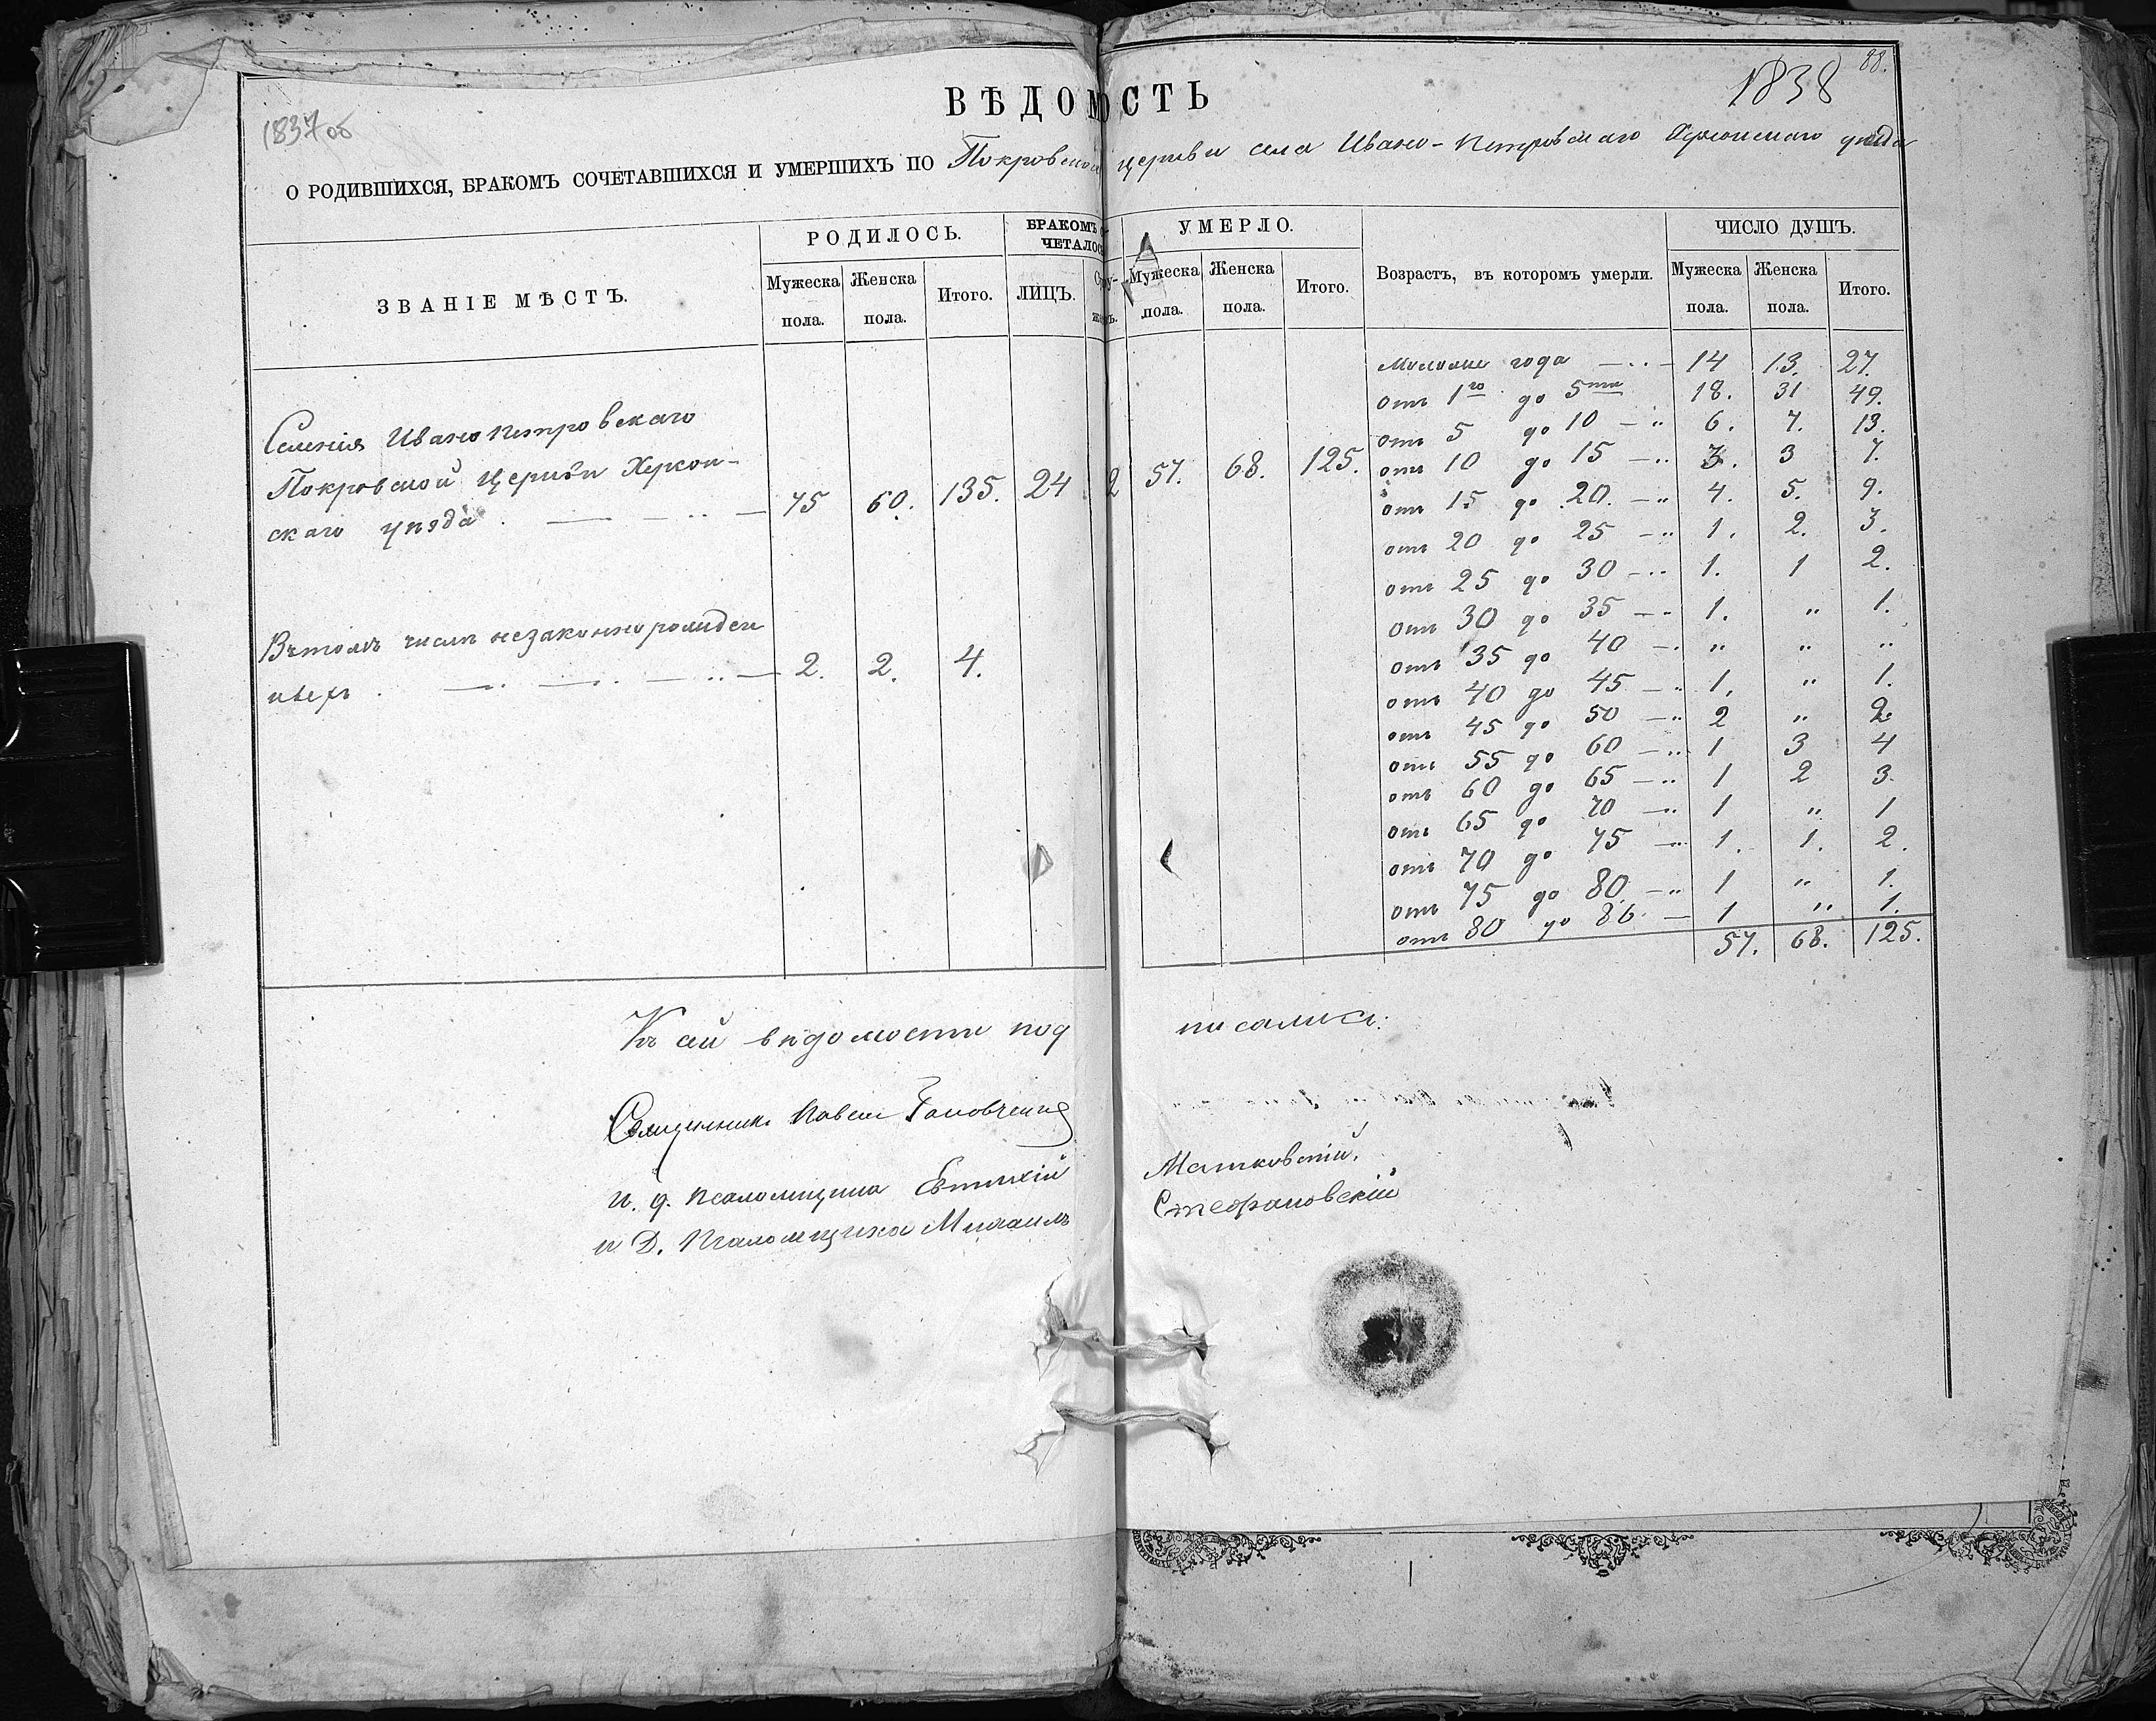 88.
1838
1837 об
ВѢДОМОСТЬ
О РОДИВШИХСЯ, БРАКОМЪ СОЧЕТАВШИХСЯ И УМЕРШИХЪ ПО Покровской церкви села Ивано-Петровскаго Херсонскаго уѣзда
ЗВАНІЕ МѢСТЪ. РОДИЛОСЬ. БРАКОМЪ СО- УМЕРЛО. Возрастъ, въ которомъ умерли. ЧИСЛО ДУШЪ.
ЧЕТАЛОСЬ
Мужеска пола. Женска пола. Итого. ЛИЦЪ. Мужеска пола. Женска пола. Итого. Мужеска пола. Женска пола. Итого.
Селенія Иванопетровскаго
Покровской Церкви Херсон-
скаго уѣзда 75 60. 135. 24 57. 68. 125.
Въ томъ числѣ незаконнорожден
ныхъ 2. 2. 4.
Моложе года 14 13. 27.
отъ 1го до 5ти 18. 31 49.
отъ 5 до 10 6. 7. 13.
отъ 10 до 15 3. 7.
отъ 15 до 20. 4. 5. 9.
отъ 20 до 25 1. 2. 3.
отъ 25 до 30 1. 1 2.
отъ 30 до 35 1. " 1.
отъ 35 до 40 " " "
отъ 40 до 45 1. " 1.
отъ 45 до 50 2 " 2.
отъ 55 до 60 1 3 4
отъ 60 до 65 1 2 3.
отъ 65 до 70 1 " 1
отъ 70 до 75 1. 1. 2.
отъ 75 до 80. 1 " 1.
отъ 80 до 86. 1 " 1.
57. 68. 125.
Къ сей вѣдомости подписались:
Священникъ Павелъ
и. д. псаломщика Евтихій Матковскій.
и Д. Псаломщика Михаилъ Стефановскій